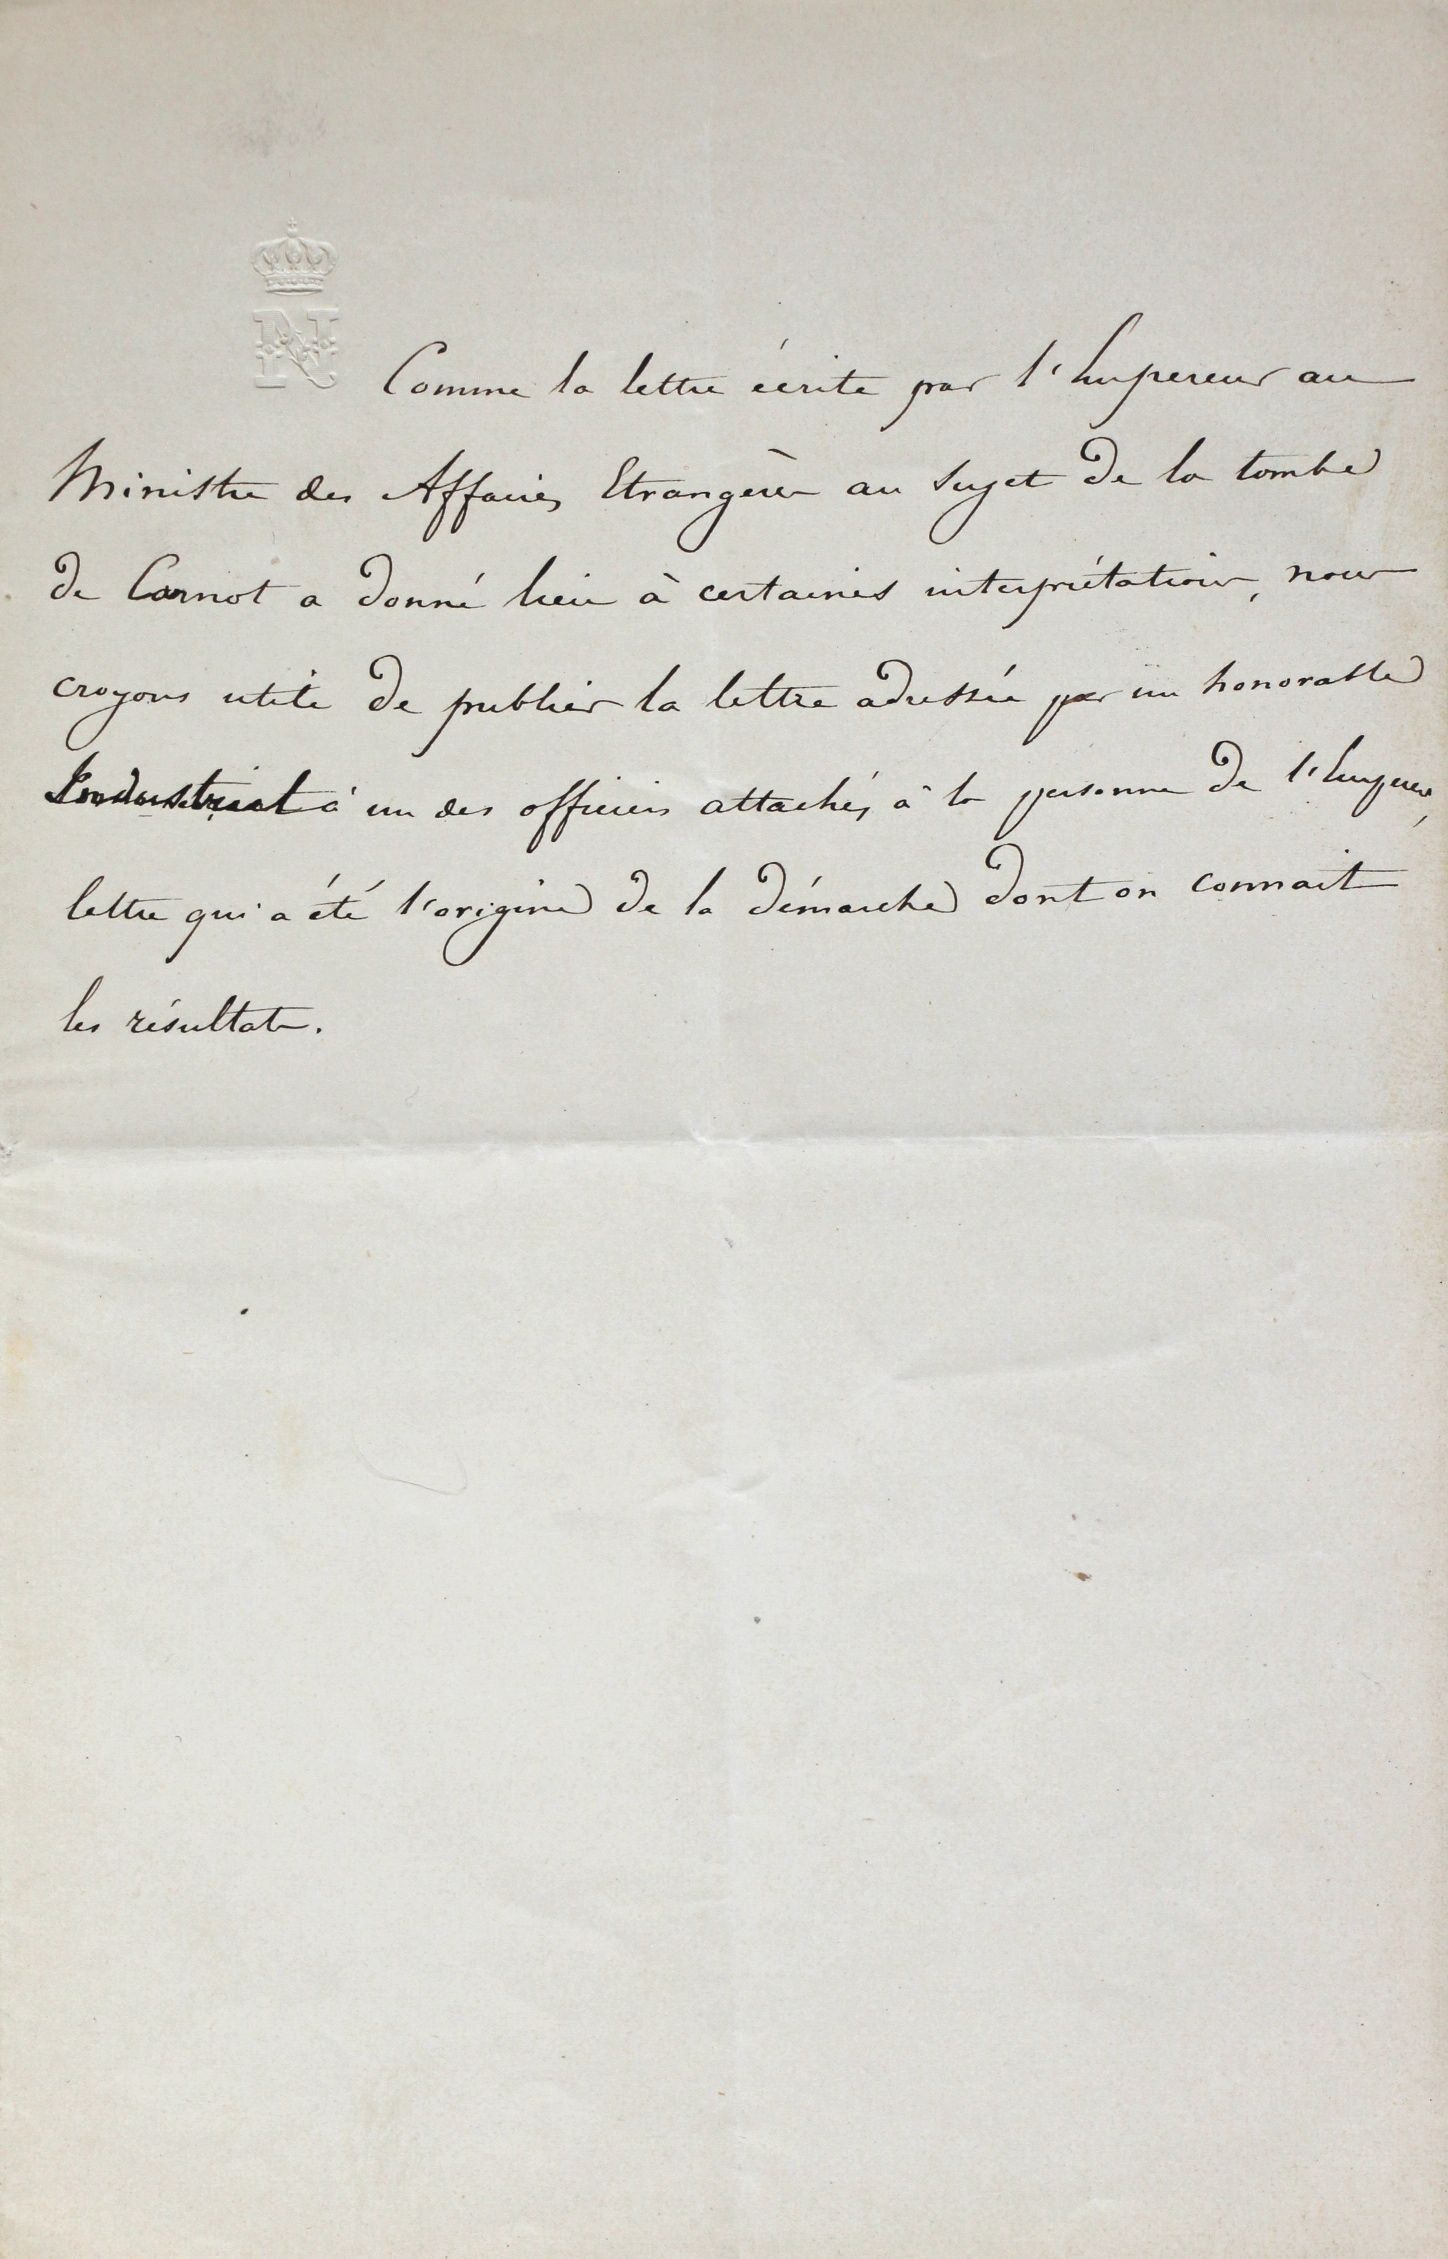 N
Comme la lettre écrite par l'Empereur au
Ministre des Affaires Etrangères au sujet de la tombe
de Carnot a donné lieu à certaines interprétations, nous
croyons utile de publier la lettre adressée par un honorable
Industriel à un des officiers attachés à la personne de l'Empereur,
lettre qui a été l'origine de la démarche dont on connait
les résultats.